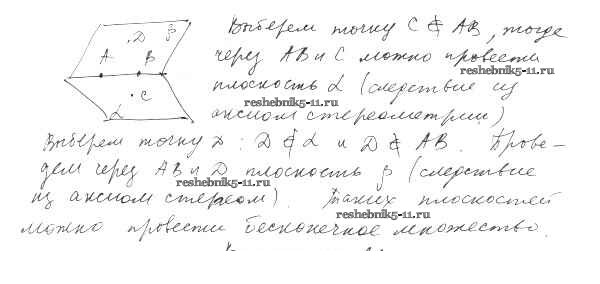 D β
A B
C
α
Выберем точку C ∉ AB, тогда
через AB и C можно провести
reshebnik5-11.ru
плоскость α (следствие из
reshebnik5-11.ru
аксиом стереометрии)
Выберем точку D : D ∉ α и D ∉ AB. Прове-
дем через AB и D плоскость β (следствие
reshebnik5-11.ru
из аксиом стереом). Таких плоскостей
reshebnik5-11.ru
можно провести бесконечное множество.